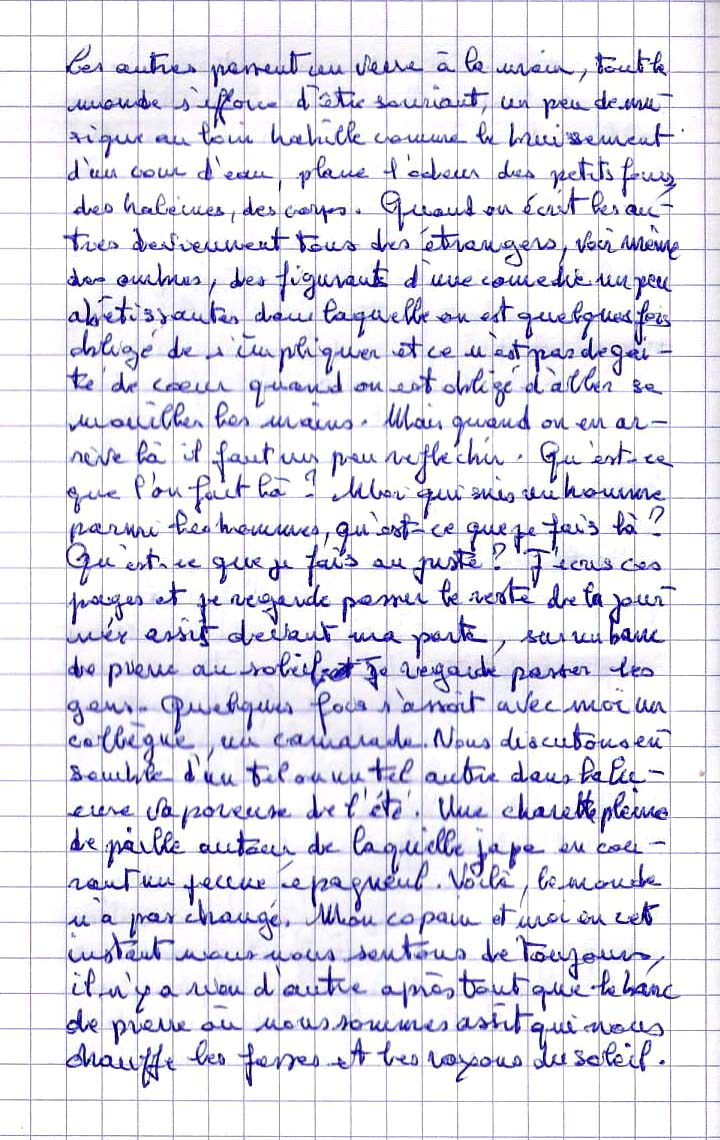 Les autres passent un verre à la main, tout le
monde s'efforce d'être souriant, un peu de mu-
sique au loin babille comme le bruissement
d'un cour d'eau, plane l'odeur des petits fours
des haleines, des corps. Quand on écrit les au-
tres deviennent tous des étrangers, voir même
des ombres, des figurants d'une comédie un peu
abêtissantes dans laquelle on est quelques fois
obligé de s'impliquer et ce n'est pas de gai-
té de coeur quand on est obligé d'aller se
mouiller les mains. Mais quand on en ar-
rive là il faut un peu reflechir. Qu'est-ce
que l'on fait là ? Moi qui suis un homme
parmi les hommes, qu'est-ce que je fais là ?
Qu'est-ce que je fais au juste ? J'écris ces
pages et je regarde passer le reste de la jour
née assis devant ma porte, sur un banc
de pierre au soleil et Je regarde passer les
gens. Quelques fois s'assoit avec moi un
collègue, un camarade. Nous discutons en
semble d'un tel ou un tel autre dans la lu-
eure vaporeuse de l'été. Une charette pleine
de paille autour de laquelle jape en cou-
rant un jeune épagneul. Voilà, le monde
n'a pas changé. Mon copain et moi en cet
instant nous nous sentons de toujours,
il n'y a rien d'autre après tout que le banc
de pierre où nous sommes assit qui nous
chauffe les fesses et les rayons du soleil.